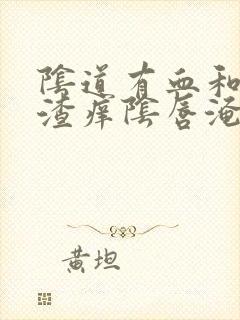 陰道有血和
渣癢陰唇淹
黃坦